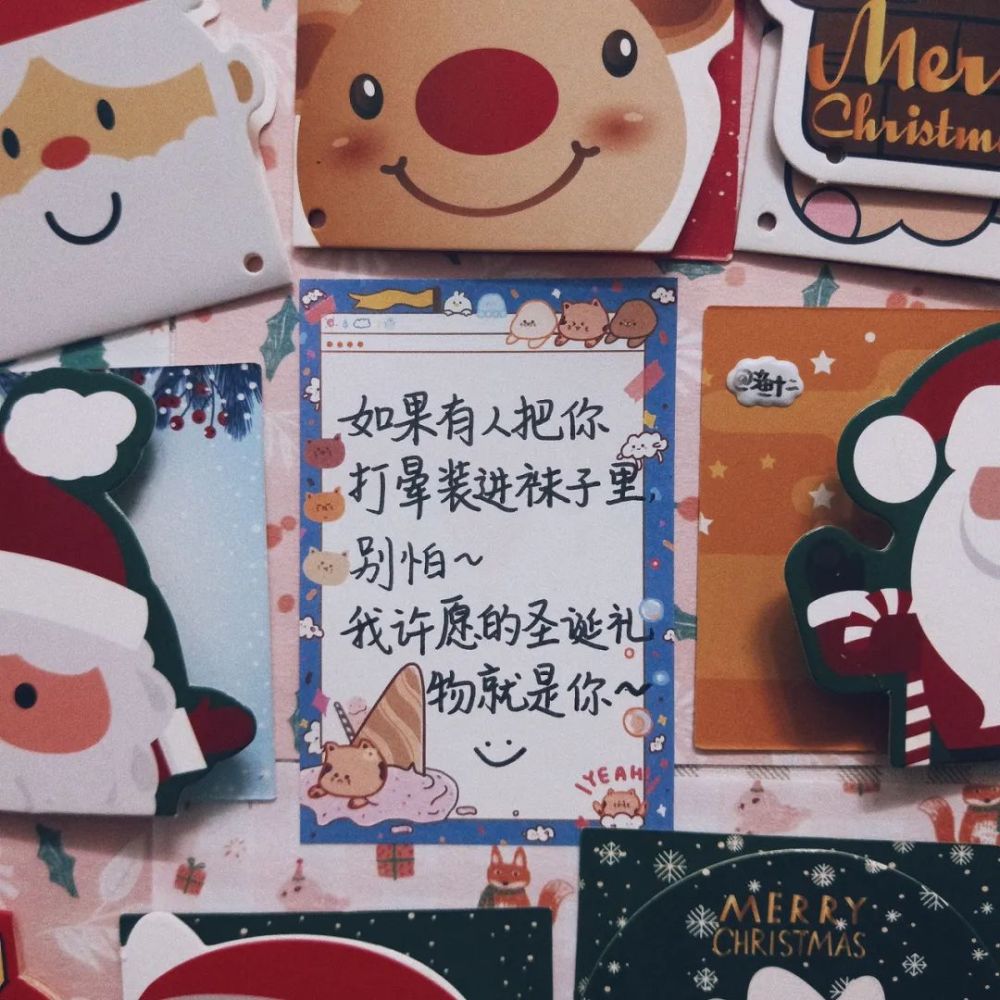 Merry
Christm
如果有人把你
打晕装进袜子里,
别怕~
我许愿的圣诞礼
物就是你~
YEAH!
MERRY
CHRISTMAS